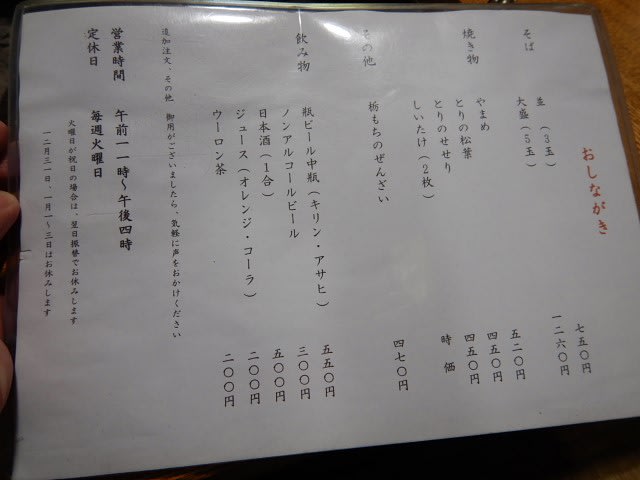 おしながき
そば
並 (3玉) 七五〇円
大盛 (5玉) 一二六〇円
焼き物
やまめ 五二〇円
とりの松葉 四五〇円
とりのせせり 四五〇円
しいたけ (2枚) 時価
その他
栃もちのぜんざい 四七〇円
飲み物
瓶ビール中瓶 (キリン・アサヒ) 五五〇円
ノンアルコールビール 三〇〇円
日本酒 (1合) 五〇〇円
ジュース (オレンジ・コーラ) 二〇〇円
ウーロン茶 二〇〇円
追加注文、その他 御用がございましたら、気軽に声をおかけください
営業時間 午前一一時～午後四時
定休日 毎週火曜日
火曜日が祝日の場合は、翌日振替でお休みします
一二月三一日、一月一～三日はお休みします